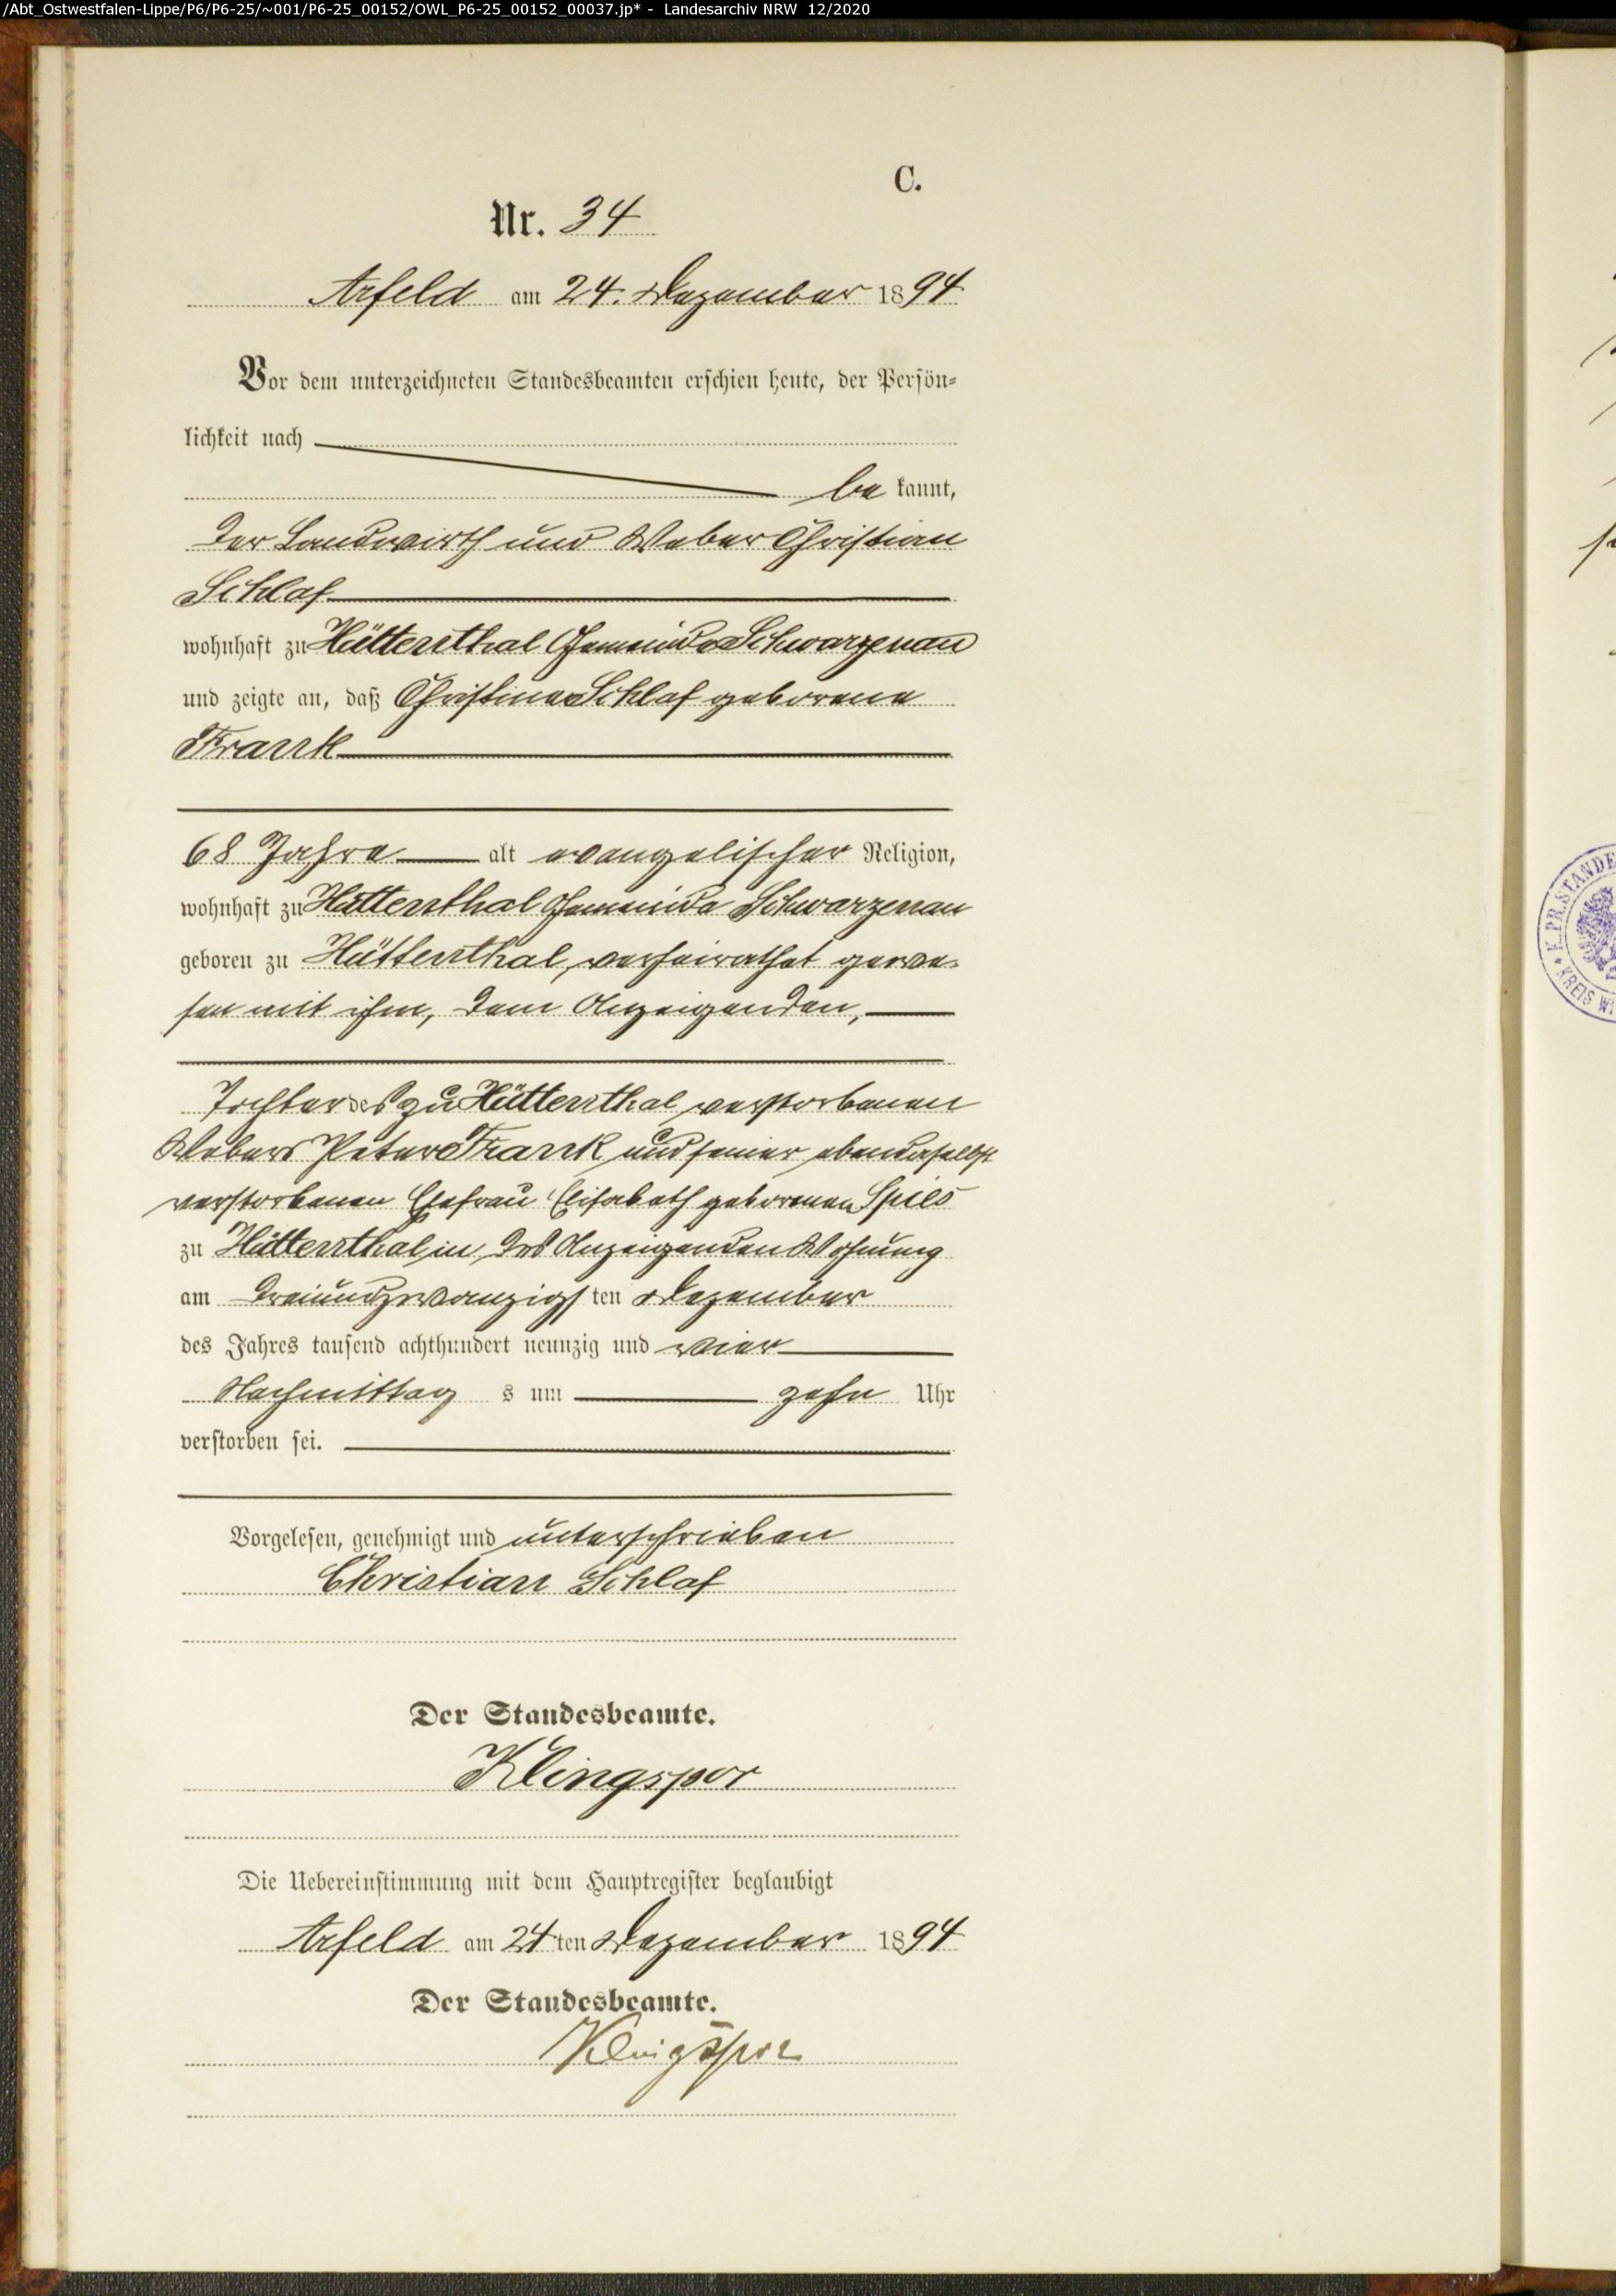 /Abt_Ostwestfalen-Lippe/P6/P6-25/~001/P6-25_00152/OWL_P6-25_00152_00037.jp* - Landesarchiv NRW 12/2020
C.
Nr. 34
Arfeld am 24. Dezember 1894
Vor dem unterzeichneten Standesbeamten erschien heute, der Persön-
lichkeit nach
be kannt,
der Landwirth und Weber Christian
Schlaf
wohnhaft zu Hüttenthal Gemeinde Schwarzenau
und zeigte an, daß Christine Schlaf geborene
Frank
68 Jahre alt evangelischer Religion,
wohnhaft zu Hüttenthal Gemeinde Schwarzenau
geboren zu Hüttenthal, verheirathet gewe-
sen mit ihm, dem Anzeigenden,
Tochter des zu Hüttenthal verstorbenen
Webers Peter Frank und seiner ebendaselbst
verstorbenen Ehefrau Elisabeth geborenen Spies
zu Hüttenthal in des Anzeigenden Wohnung
am dreiundzwanzigsten Dezember
des Jahres tausend achthundert neunzig und vier
Nachmittag s um zehn Uhr
verstorben sei.
Vorgelesen, genehmigt und unterschrieben
Christian Schlaf
Der Standesbeamte.
Klingspor
Die Uebereinstimmung mit dem Hauptregister beglaubigt
Arfeld am 24ten Dezember 1894
Der Standesbeamte.
Klingspor